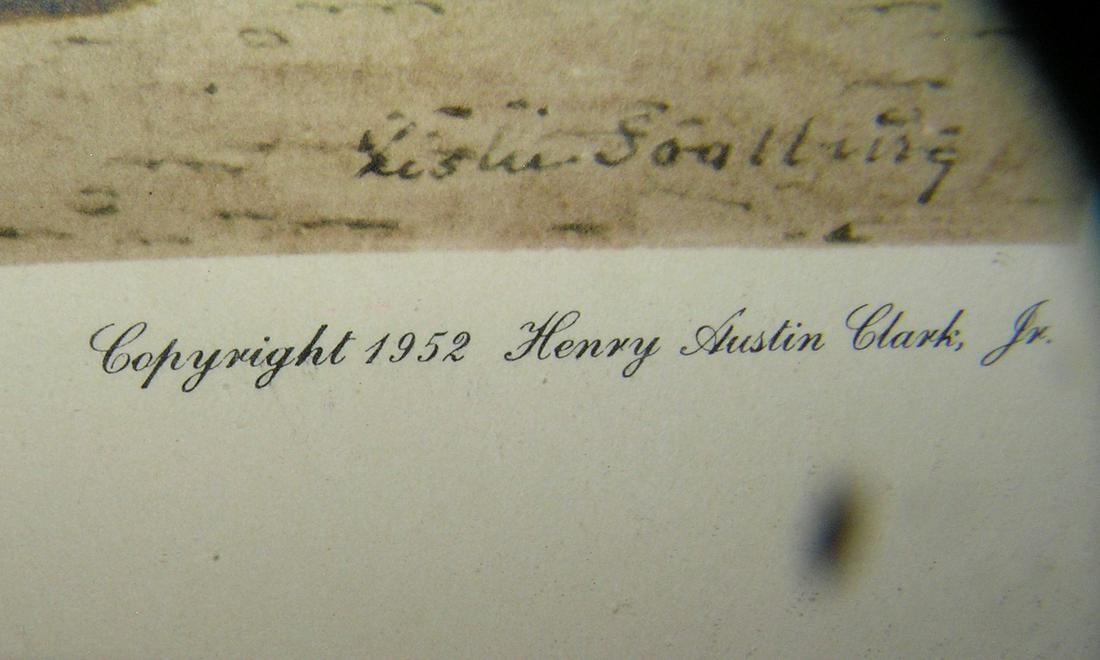 Leslie Saalburg
Copyright 1952 Henry Austin Clark, Jr.